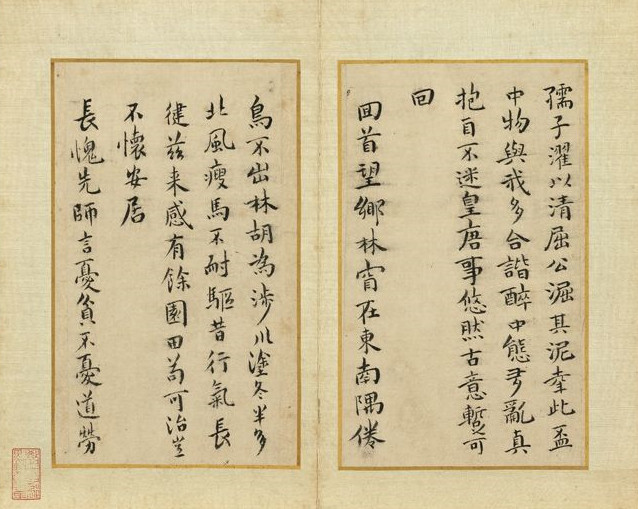 孺子濯以清屈公淈其泥幸此盃
中物與我多合諧醉中態亂真
抱自不迷皇唐事悠然古意暫可
回
回首望鄉林在東南隅倦
鳥不出林胡為涉川塗冬半多
北風瘦馬不耐驅昔行氣長
健茲来感有餘園田苟可治豈
不懷安居
長愧先師言憂貧不憂道勞